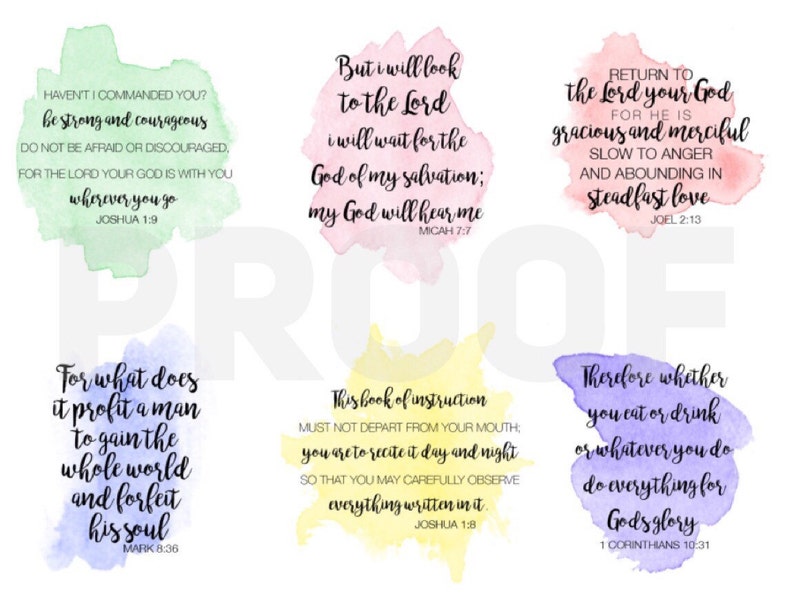 HAVEN'T I COMMANDED YOU?
be strong and courageous
DO NOT BE AFRAID OR DISCOURAGED,
FOR THE LORD YOUR GOD IS WITH YOU
wherever you go
JOSHUA 1:9
But i will look
to the Lord
i will wait for the
God of my salvation;
my God will hear me
MICAH 7:7
RETURN TO
the Lord your God
FOR HE IS
gracious and merciful
SLOW TO ANGER
AND ABOUNDING IN
steadfast love
JOEL 2:13
PROOF
For what does
it profit a man
to gain the
whole world
and forfeit
his soul
MARK 8:36
This book of instruction
MUST NOT DEPART FROM YOUR MOUTH;
you are to recite it day and night
SO THAT YOU MAY CAREFULLY OBSERVE
everything written in it.
JOSHUA 1:8
Therefore whether
you eat or drink
or whatever you do
do everything for
God's glory
1 CORINTHIANS 10:31